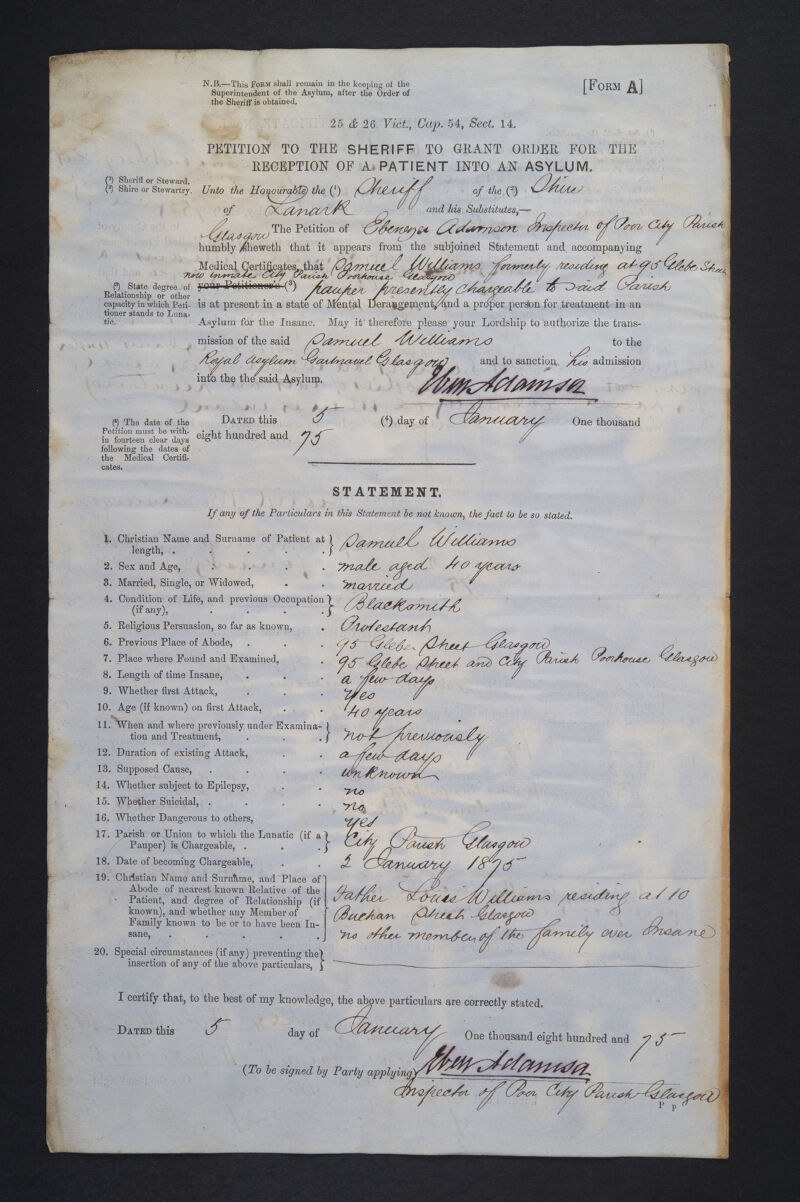 N.B.—This Form shall remain in the keeping of the
Superintendent of the Asylum, after the Order of
the Sheriff is obtained.
[Form A]
25 & 26 Vict., Cap. 54, Sect. 14.
PETITION TO THE SHERIFF TO GRANT ORDER FOR THE
RECEPTION OF A PATIENT INTO AN ASYLUM.
(1) Sheriff or Steward.
(2) Shire or Stewartry.
Unto the Honourable the (1) Sheriff of the (2) Shire
of Lanark and his Substitutes,—
The Petition of Ebenezer Adamson Inspector of Poor City Parish
Glasgow
humbly sheweth that it appears from the subjoined Statement and accompanying
Medical Certificates, that Samuel Williams formerly residing at 95 Glebe Street
now inmate City Parish Poorhouse Glasgow
(3) State degree of
Relationship or other
capacity in which Peti-
tioner stands to Luna-
tic.
your Petitioner's (3) pauper presently chargeable to said Parish
is at present in a state of Mental Derangement, and a proper person for treatment in an
Asylum for the Insane. May it therefore please your Lordship to authorize the trans-
mission of the said Samuel Williams to the
Royal Asylum Gartnavel Glasgow and to sanction his admission
into the the said Asylum.
Eben Adamson
(4) The date of the
Petition must be with-
in fourteen clear days
following the dates of
the Medical Certifi-
cates.
Dated this 5 (4) day of January One thousand
eight hundred and 75
STATEMENT.
If any of the Particulars in this Statement be not known, the fact to be so stated.
1. Christian Name and Surname of Patient at
length, . . . . . .} Samuel Williams
2. Sex and Age, . . . . male aged 40 years
3. Married, Single, or Widowed, . . married
4. Condition of Life, and previous Occupation
(if any), . . . . .} Blacksmith
5. Religious Persuasion, so far as known, . Protestant
6. Previous Place of Abode, . . . 95 Glebe Street Glasgow
7. Place where Found and Examined, . 95 Glebe Street and City Parish Poorhouse Glasgow
8. Length of time Insane, . . . a few days
9. Whether first Attack, . . . yes
10. Age (if known) on first Attack, . . 40 years
11. When and where previously under Examina-
tion and Treatment, . . . .} not previously
12. Duration of existing Attack, . . a few days
13. Supposed Cause, . . . . unknown
14. Whether subject to Epilepsy, . . no
15. Whether Suicidal, . . . . no
16. Whether Dangerous to others, . . yes
17. Parish or Union to which the Lunatic (if a
Pauper) is Chargeable, . . . .} City Parish Glasgow
18. Date of becoming Chargeable, . . 2 January 1875
19. Christian Name and Surname, and Place of
Abode of nearest known Relative of the
Patient, and degree of Relationship (if
known), and whether any Member of
Family known to be or to have been In-
sane, . . . . . .
Father Louis Williams residing at 10
Buchan Street Glasgow
no other member of the family ever Insane
20. Special circumstances (if any) preventing the
insertion of any of the above particulars, }
I certify that, to the best of my knowledge, the above particulars are correctly stated.
Dated this 5 day of January One thousand eight hundred and 75
(To be signed by Party applying) Eben Adamson
Inspector of Poor City Parish Glasgow
P p